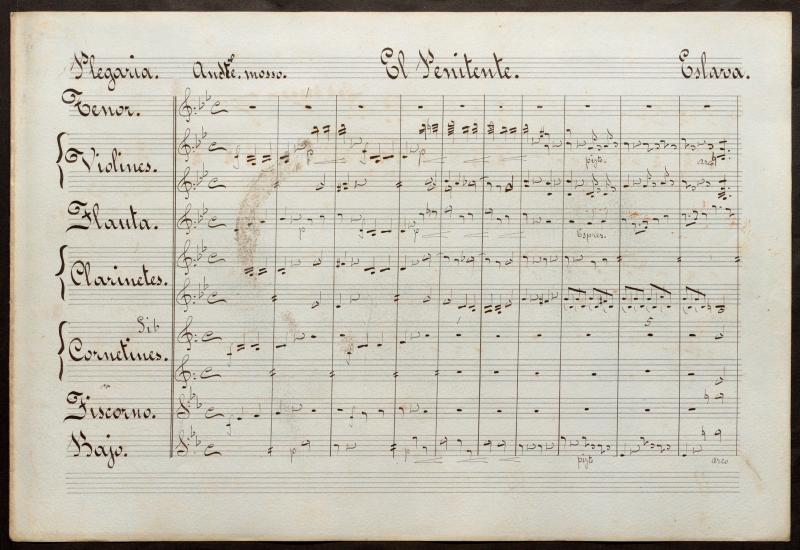 Plegaria. Andte. mosso. El Penitente. Eslava.
Tenor.
Violines.
f p f p pizto. arco
Flauta.
f p f p Espres.
Clarinetes.
Sib
Cornetines.
f f
5
Fiscorno.
f f
Bajo.
p p pizto arco